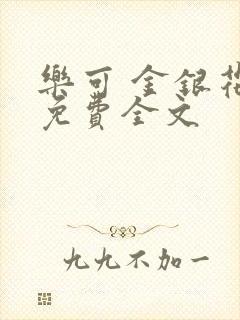 樂可 金銀花
免費全文
九九不加一